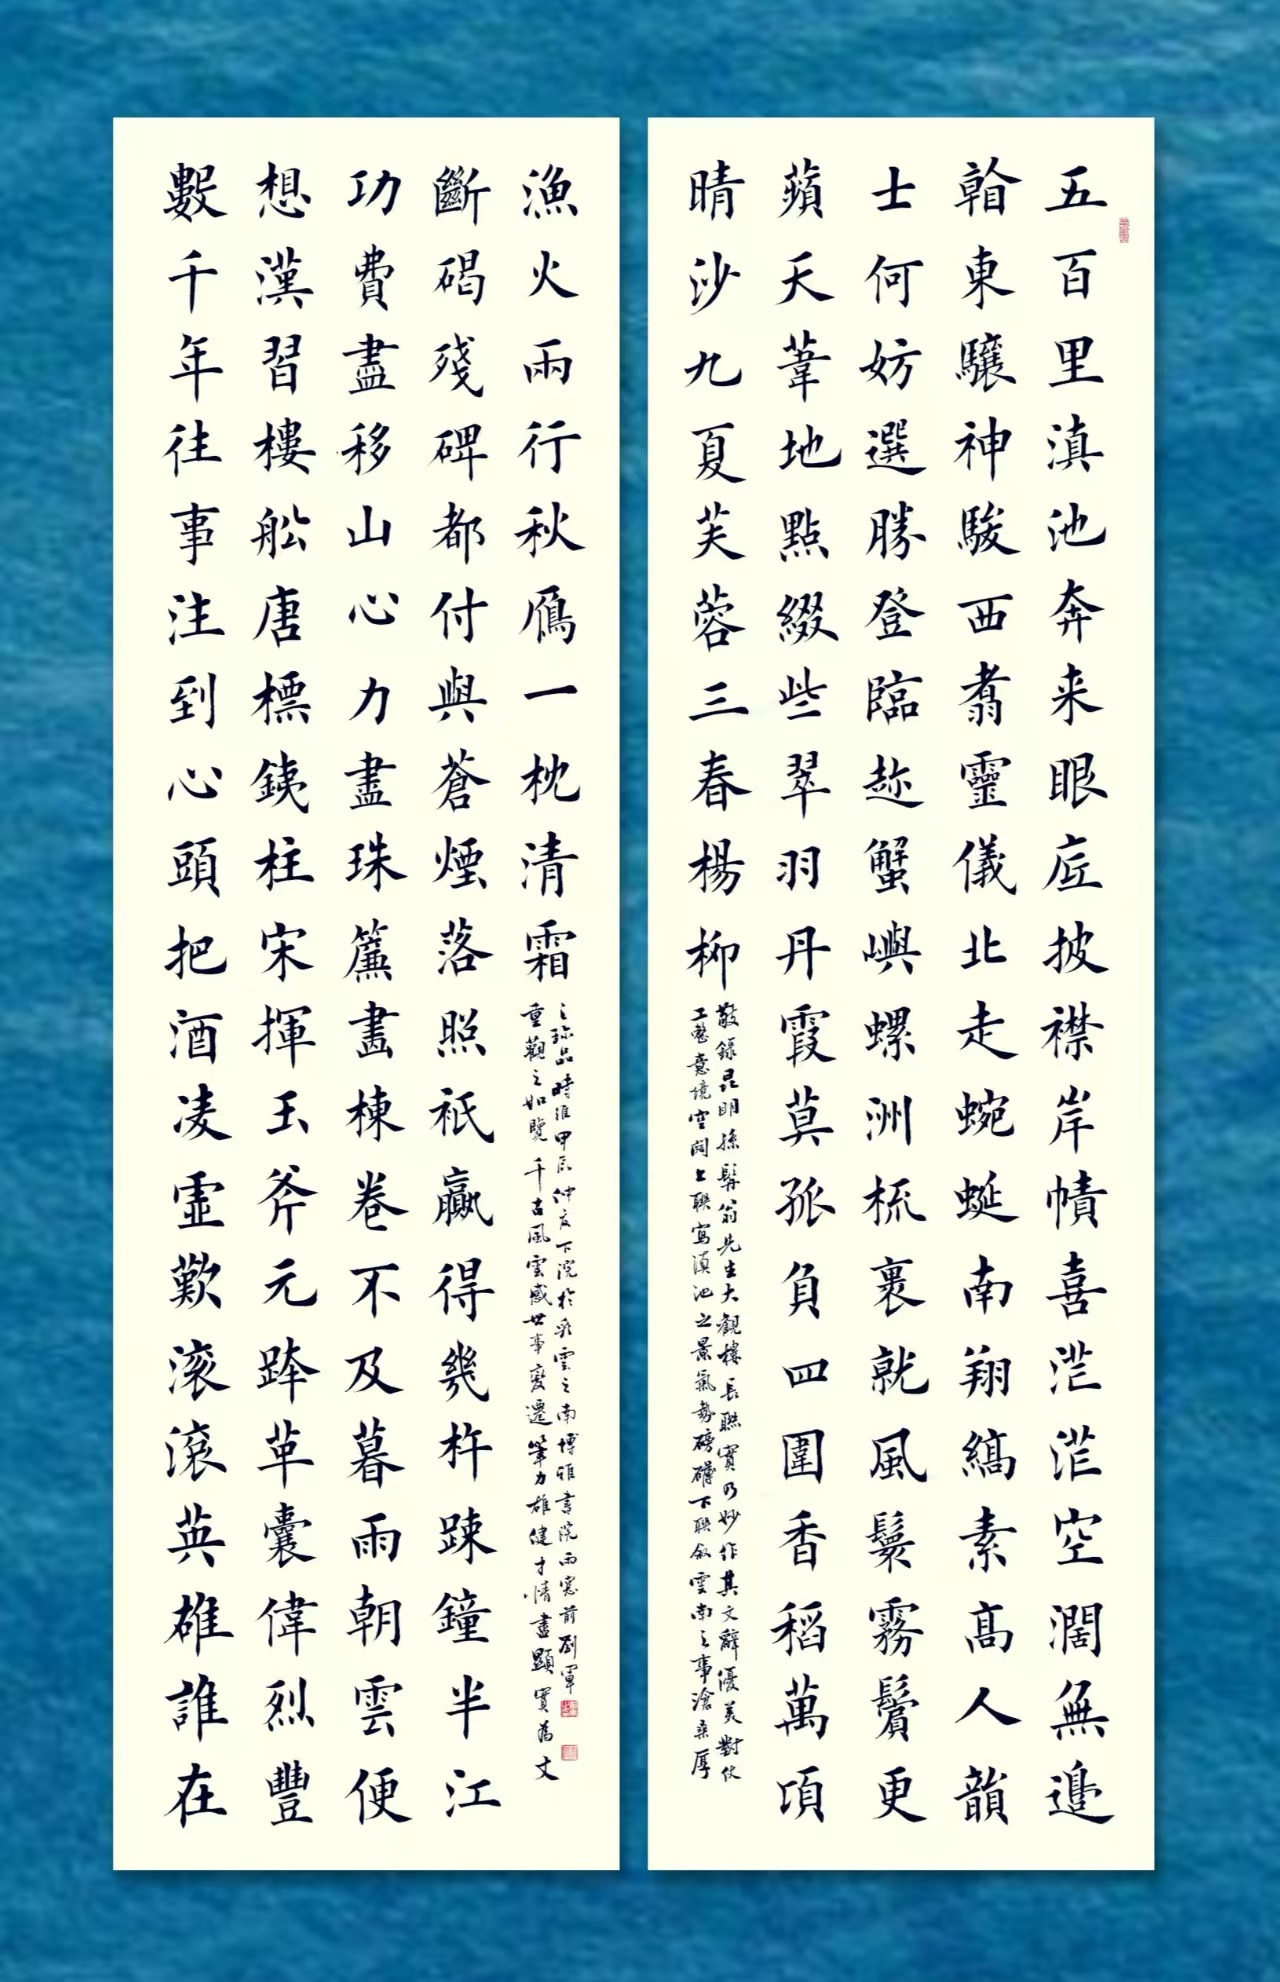 五百里滇池奔来眼底披襟岸幘喜茫茫空濶無邊
看東驤神駿西翥靈儀北走蜿蜒南翔縞素高人韻
士何妨選勝登臨趂蟹嶼螺洲梳裹就風鬟霧鬢更
蘋天葦地點綴些翠羽丹霞莫孤負四圍香稻萬頃
晴沙九夏芙蓉三春楊柳
敬錄昆明孫髯翁先生大觀樓長聯實乃妙作其文辭優美對仗
工整意境空闊上聯寫滇池之景氣勢磅礴下聯叙雲南之事滄桑厚
數千年往事注到心頭把酒凌虛歎滚滚英雄誰在
想漢習樓船唐標銕柱宋揮玉斧元跨革囊偉烈豐
功費盡移山心力盡珠簾畫棟卷不及暮雨朝雲便
斷碣殘碑都付與蒼煙落照祇贏得幾杵疎鐘半江
漁火兩行秋鴈一枕清霜
重觀之如覽千古風雲感世事變遷筆力雄健才情盡顯實爲文
之珍品時維甲辰仲夏下浣於彩雲之南博雅書院雨窓前劉軍